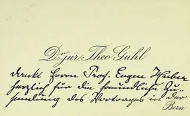 Dr jur. Theo Guhl
dankt Herrn Prof. Eugen Huber
herzlich für die freundliche Zu-
sendung des Vortrages in
Bern